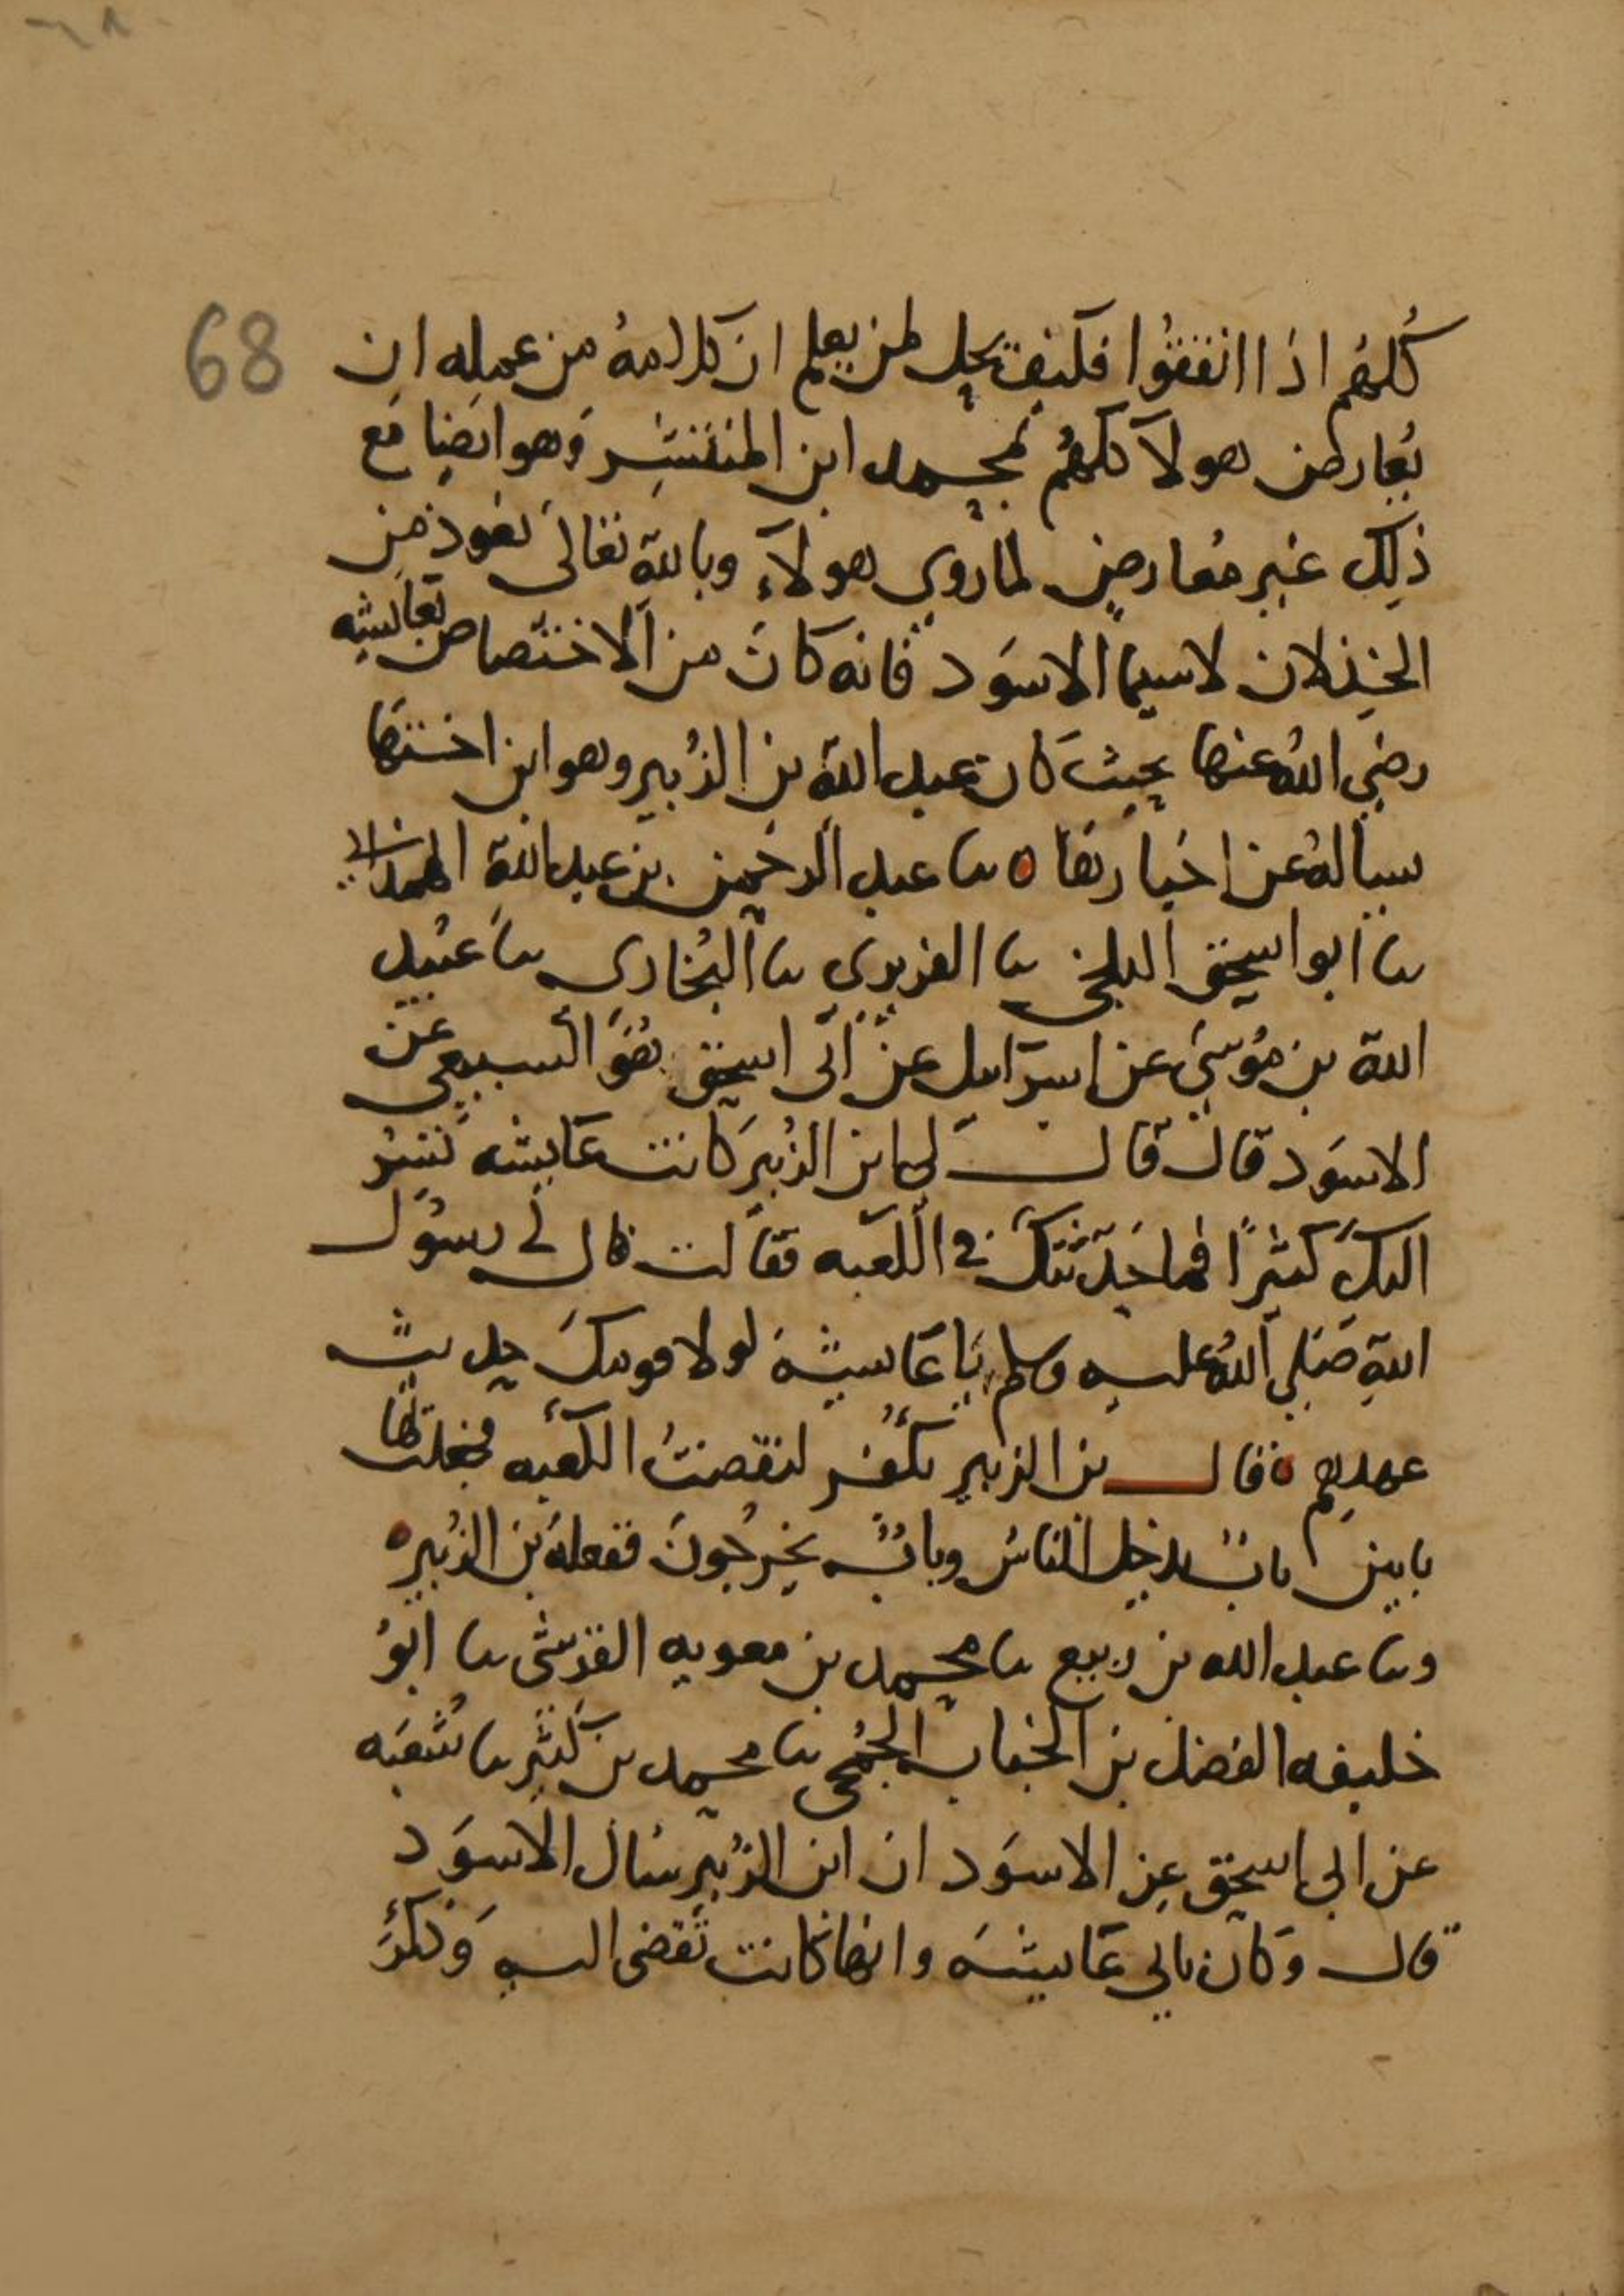 68
كُلهُم اذا اتفقوا فكيف يحل لمن يعلم ان كلامهُ من عمله ان
يُعارض هولآ كلهُم بمحمد ابن المنتشِر وَهو ايضِا مَع
ذلِك غير مُعارضٍ لما روي هولآءِ وباللهِ تعَالى نعوذ مِن
الخِذلان لاسيما الاسوَد فانه كانَ من الاختصاص بعَايشه
رضي اللهُ عنها بحيث كان عبد الله بن الزُبير وهو ابن اختها
يسالهُ عن اخبَارهَا ه ىا عبد الرحمٰن بن عبد اللهِ الهمداني
ىا ابو اسحٰق البلخي ىا الفربري ىا البُخاري ىا عبُيد
الله بن مُوسىَ عن اسرَايل عن ابى اسحٰق هُوَ السبيعي عن
الاسوَد قال قال لي ابن الزُبير كانت عَايشه تُسِرُ
اليكَ كثيرًا فما حَدّثتكَ في الكعبه فقالت قال لي رسوُل
اللهِ صَلى اللهُ عليه وسلم يَا عَايشهَ لولا قومكَ حديث
عهدهم ه قال بن الزبير بكُفر لنقضتُ الكَعبه فجعلتُ لهَا
بابين بابٌ يدخل الناسُ وبابٌ يخرجُونَ ففعلهَ بن الزُبيره
وىا عبد الله بن ربيع ىا محمد بن معويه القرشي ىا ابوُ
خليفه الفضل بن الحُباب الجُمَحي ىا محمد بن كَثير ىا شُعبَه
عن ابي اسحٰق عن الاسوَد ان ابن الزُبير سَال الاسوَد
قال وَكان ياتي عَايشهَ وانهَا كانت تُفضى اليه وَذكَرَ